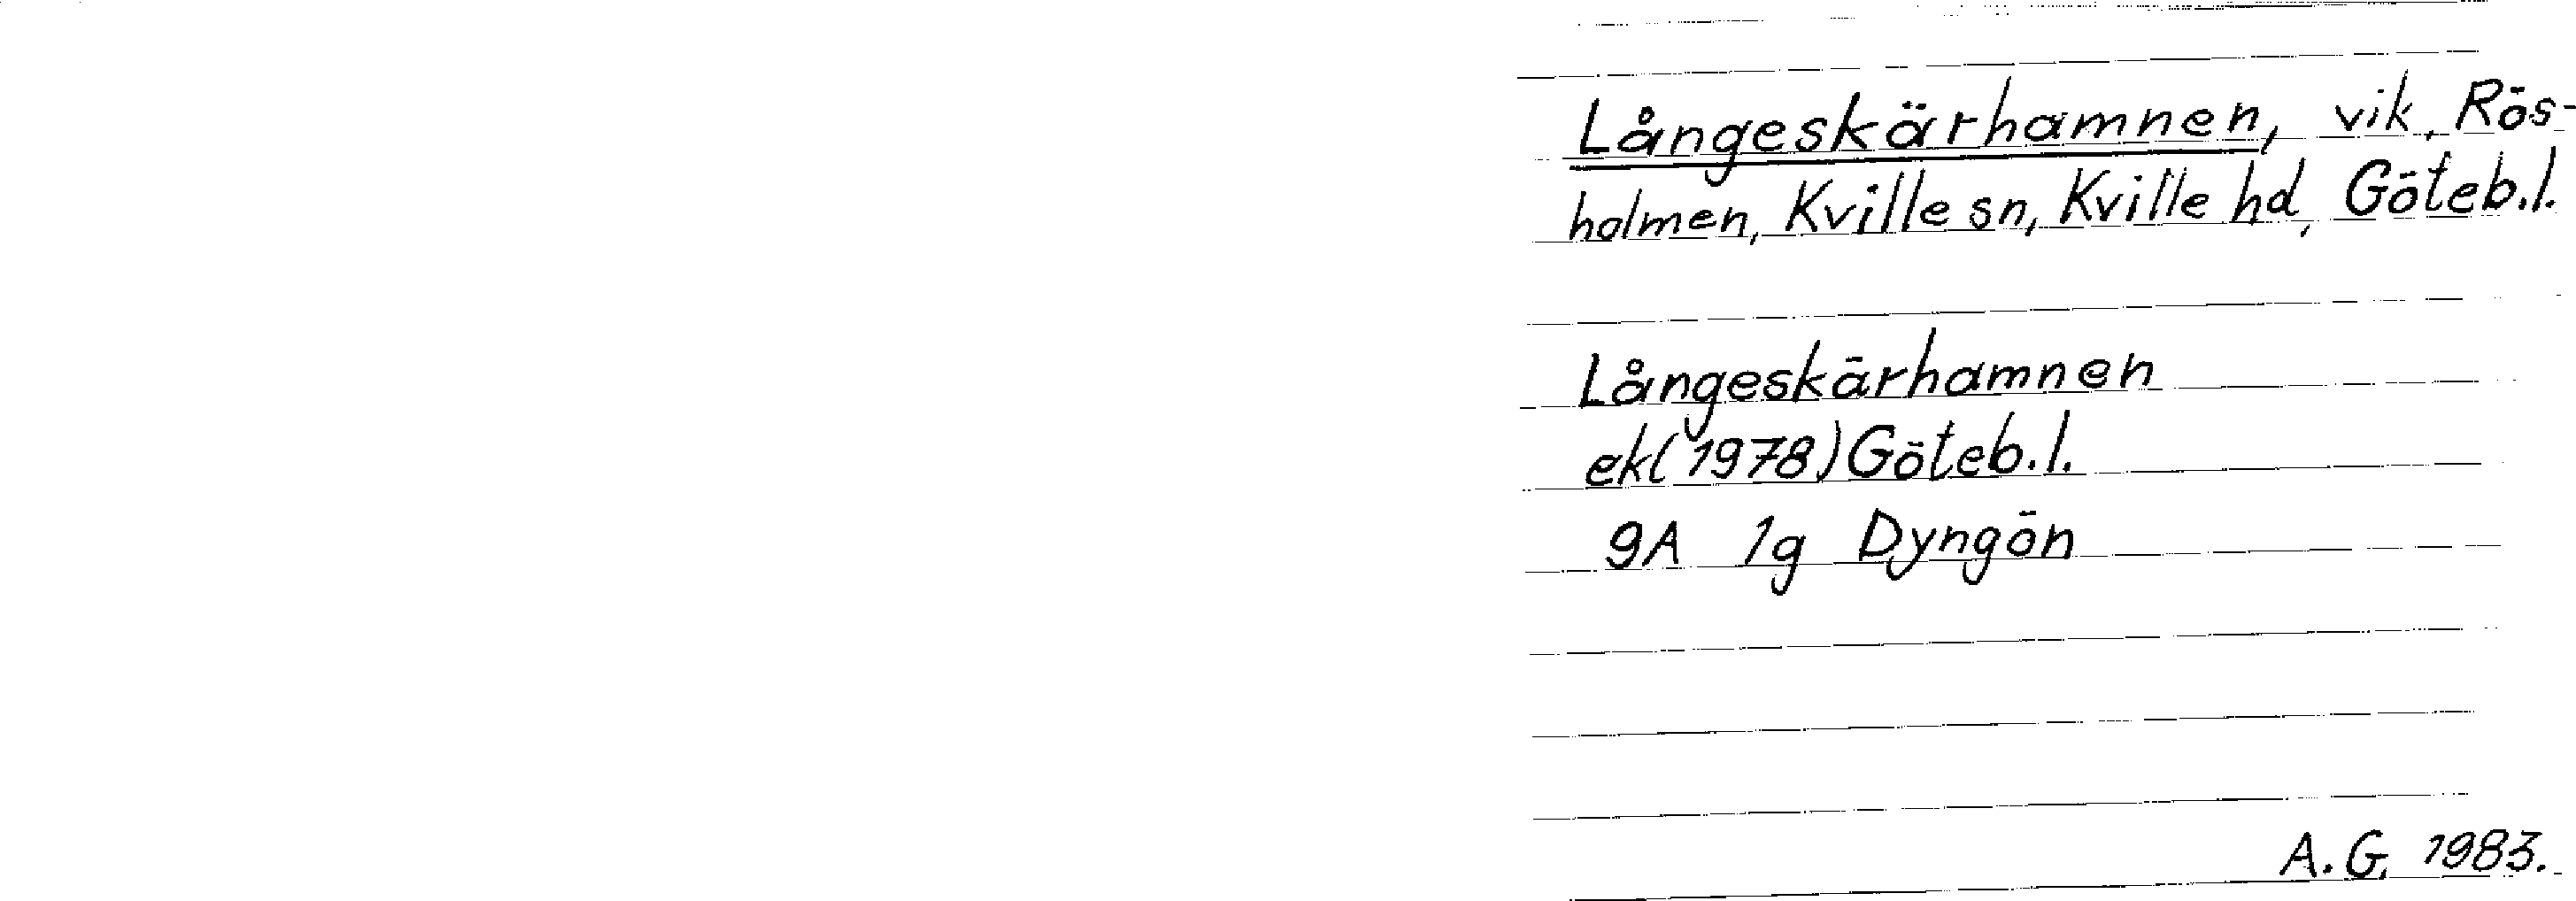 Långeskärhamnen, vik, Rös-
holmen, Kville sn, Kville hd, Göteb.l.
Långeskärhamnen
ek(1978) Göteb.l.
9A 1g Dyngön
A.G. 1983.